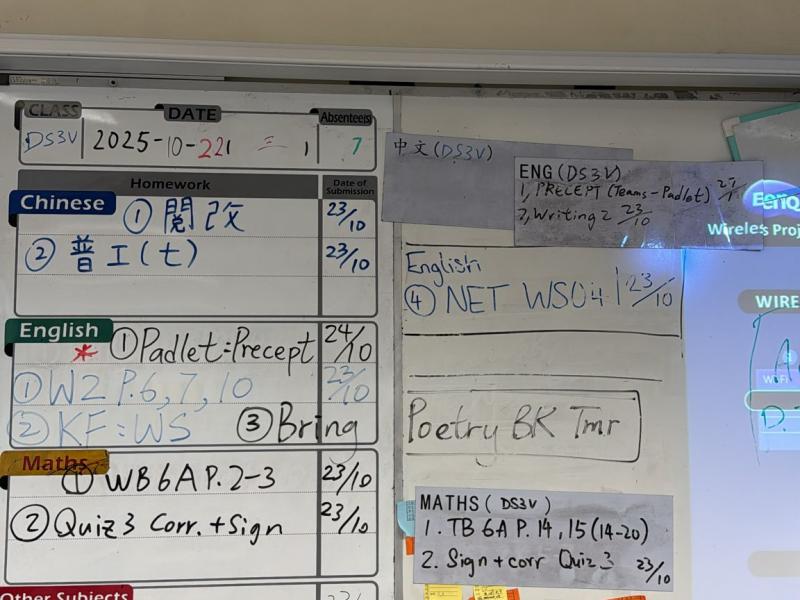 CLASS DATE Absentee(s)
DS3V 2025-10-22 三 7
Homework Date of Submission
Chinese ① 閱改 23/10
② 普工(七) 23/10
English * ① Padlet: Precept 24/10
① W2 P.6,7,10 23/10
② KF: WS ③ Bring
Maths ① WB 6A P. 2-3 23/10
② Quiz 3 Corr. + Sign 23/10
Other Subjects
中文(DS3V)
ENG (DS3V)
1, PRECEPT (Teams-Padlet)
2, Writing 2 23/10
English
④ NET WS04 23/10
Poetry BK Tmr
MATHS (DS3V)
1. TB 6A P. 14, 15 (14-20)
2. Sign + corr Quiz 3 23/10
BenQ
Wireless Proj
WIRE